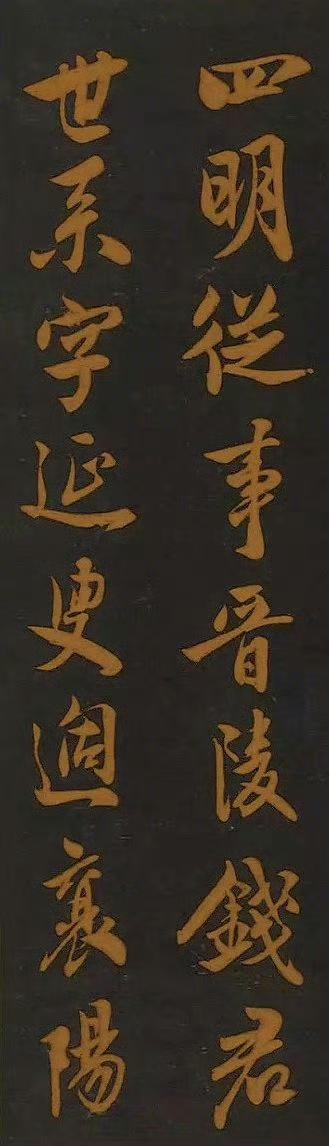 四明從事晉陵錢君
世系字延叟適襄陽